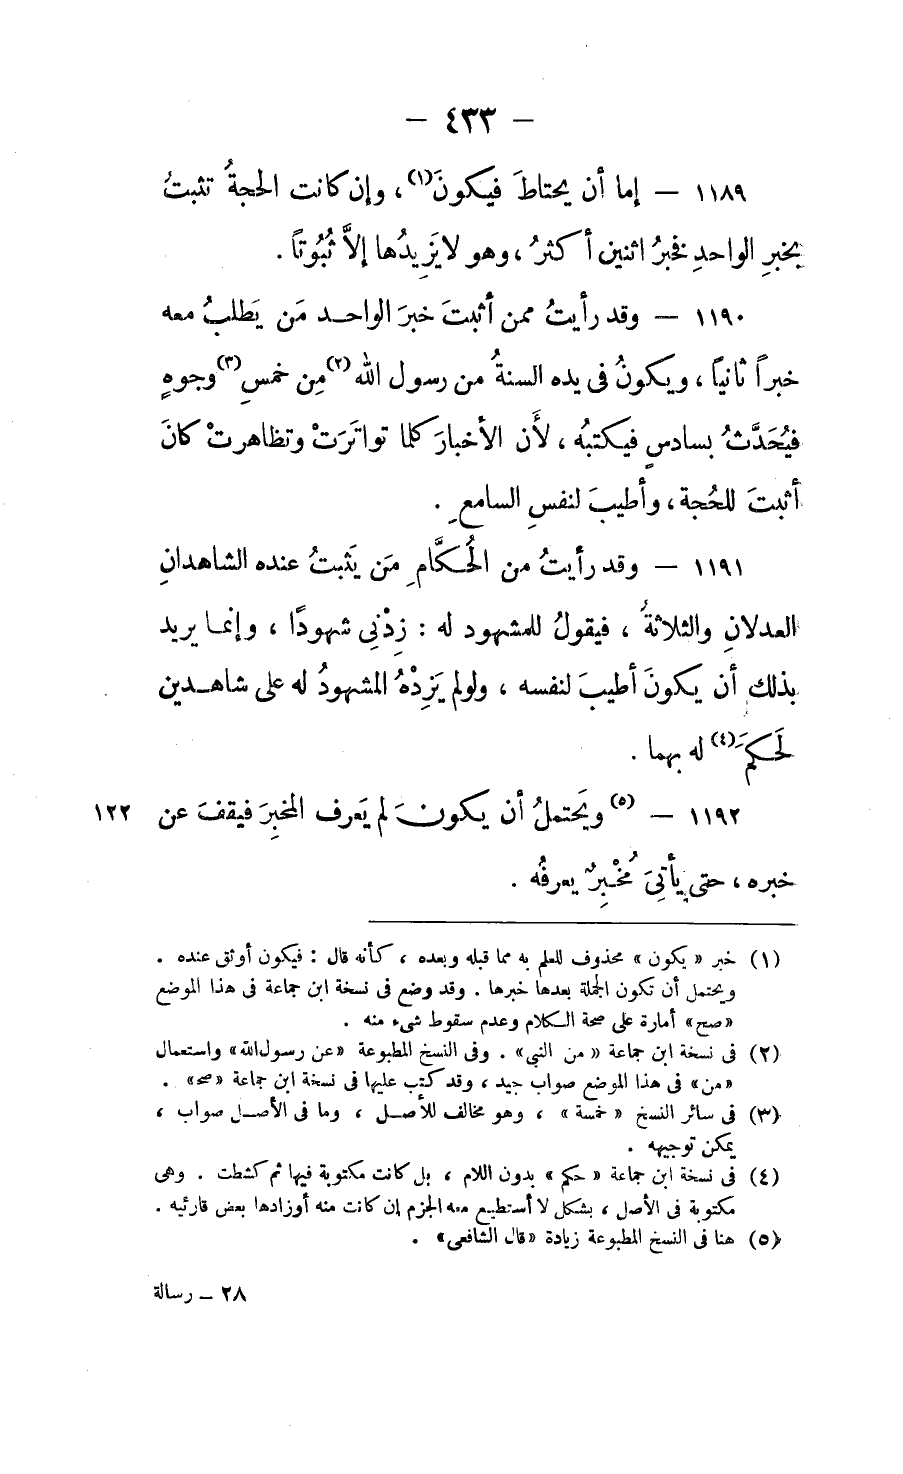 — ٤٣٣ —
١١٨٩ — إما أن يحتاطَ فيكونَ(١)، وإن كانت الحجةُ تثبتُ
بخبرِ الواحدِ فخبرُ اثنين أكثرُ، وهو لا يَزِيدُها إلاَّ ثُبُوتاً .
١١٩٠ — وقد رأيتُ ممن أثبتَ خبرَ الواحد مَن يَطلبُ معه
خبراً ثانياً ، ويكونُ فى يده السنةُ من رسول الله(٢) مِن خمسِ(٣) وجوهٍ
فيُحَدَّثُ بسادسٍ فيكتبُه ، لأَن الأخبارَ كلما تواتَرَتْ وتظاهرتْ كانَ
أثبتَ للحُجة ، وأطيبَ لنفسِ السامعِ .
١١٩١ — وقد رأيتُ من الُحكَّامِ مَن يَثبتُ عنده الشاهدانِ
العدلانِ والثلاثةُ ، فيقولُ للمشهود له : زِدْنِى شهودًا ، وإنما يريد
بذلك أن يكونَ أطيبَ لنفسه ، ولو لم يَزِدْهُ المشهودُ له على شاهدين
لَحكمَ(٤) له بهما .
١١٩٢ — (٥) ويَحتملُ أن يكونَ لم يَعرف المخبِرَ فيقفَ عن ١٢٢
خبره ، حتى يأتِىَ مُخْبِرٌ يعرفُه .
(١) خبر « يكون » محذوف للعلم به مما قبله وبعده ، كأنه قال : فيكون أوثق عنده .
ويحتمل أن تكون الجملة بعدها خبرها . وقد وضع فى نسخة ابن جماعة فى هذا الموضع
«صح» أمارة على صحة الكلام وعدم سقوط شىء منه .
(٢) فى نسخة ابن جماعة « من النبي » . وفى النسخ المطبوعة « عن رسول الله» واستعمال
«من» فى هذا الموضع صواب جيد ، وقد كتب عليها فى نسخة ابن جماعة «صح» .
(٣) فى سائر النسخ « خمسة » ، وهو مخالف للأصل ، وما فى الأصل صواب ،
يمكن توجيهه .
(٤) فى نسخة ابن جماعة « حكم » بدون اللام ، بل كانت مكتوبة فيها ثم كشطت . وهى
مكتوبة فى الأصل ، بشكل لا أستطيع معه الجزم إن كانت منه أوزادها بعض قارئيه .
(٥) هنا فى النسخ المطبوعة زيادة «قال الشافعى» .
٢٨ — رسالة